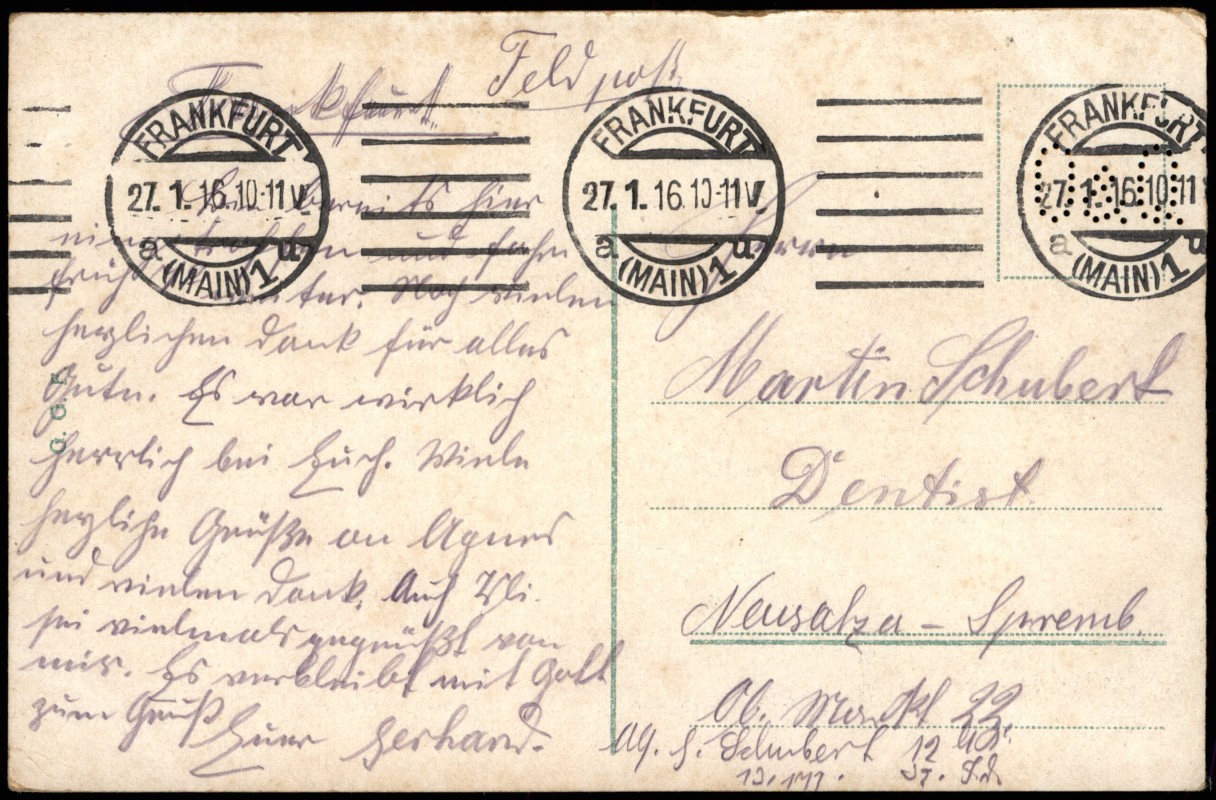 Feldpost
Frankfurt.
FRANKFURT
27.1.16.10-11V.
a u
(MAIN)1
FRANKFURT
27.1.16.10-11V.
a u
(MAIN)1
FRANKFURT
27.1.16.10-11
a u
(MAIN)1
bereits hier
und fahre
früh weiter. Noch vielen
herzlichen Dank für alles
Gute. Es war wirklich
herrlich bei Euch. Viele
herzliche Grüße an Agnes
und vielen Dank. Auch
sei vielmals gegrüßt von
mir. Es verbleibt mit Gott
zum Gruß
Euer Gerhard.
G. G. F.
Herrn
Martin Schubert
Dentist
Neusalza - Spremb.
Ob. Markt 22.
Schubert 12